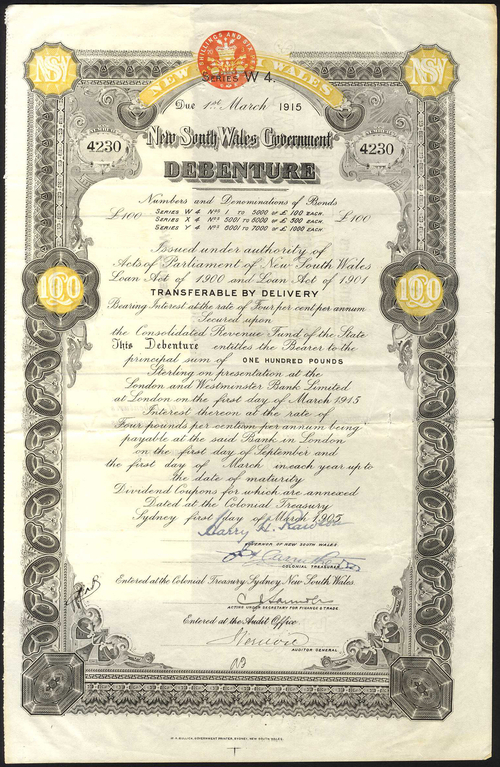 NSW
NEW S WALES
NSW
SHILLINGS AND SIX
SERIES W 4.
Due 1st March 1915
4230
4230
New South Wales Government
DEBENTURE
Numbers and Denominations of Bonds
£100 SERIES W 4 Nos 1 TO 5000 OF £ 100 EACH. £100
SERIES X 4 Nos 5001 TO 6000 OF £ 500 EACH.
SERIES Y 4 Nos 6001 TO 7000 OF £ 1000 EACH
Issued under authority of
Acts of Parliament of New South Wales
Loan Act of 1900 and Loan Act of 1901
100
100
TRANSFERABLE BY DELIVERY
Bearing Interest at the rate of Four per cent per annum
Secured upon
the Consolidated Revenue Fund of the State
This Debenture entitles the Bearer to the
principal sum of ONE HUNDRED POUNDS
Sterling on presentation at the
London and Westminster Bank Limited
at London on the first day of March 1915
Interest thereon at the rate of
Four pounds per centum per annum being
payable at the said Bank in London
on the first day of September and
the first day of March in each year up to
the date of maturity
Dividend Coupons for which are annexed
Dated at the Colonial Treasury
Sydney first day of March 1905
Harry H. Rawson
GOVERNOR OF NEW SOUTH WALES
COLONIAL TREASURER
Entered at the Colonial Treasury Sydney New South Wales
ACTING UNDER SECRETARY FOR FINANCE & TRADE
Entered at the Audit Office
AUDITOR GENERAL
GOVERNMENT PRINTER, SYDNEY, NEW SOUTH WALES.